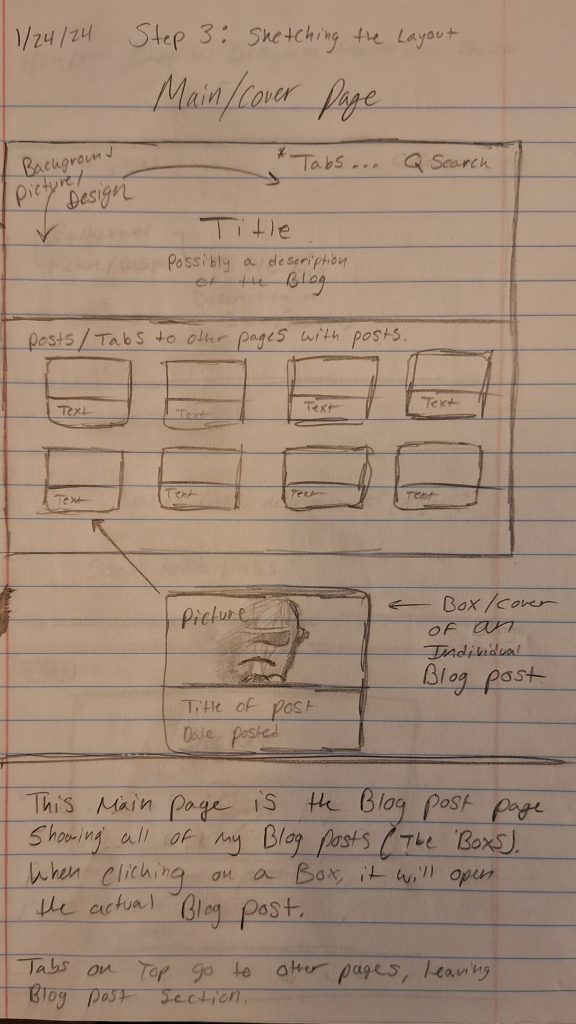 1/24/24 Step 3: Sketching the Layout
Main/cover Page
Background
Picture/
Design
*Tabs... Search
Title
Possibly a description
of the Blog
Posts/Tabs to other pages with posts.
Text Text Text Text
Text Text Text Text
Picture
Title of post
Date posted
← Box/cover
of an
Individual
Blog post
This Main page is the Blog post page
Showing all of my Blog posts (The Boxs).
When clicking on a Box, it will open
the actual Blog post.
Tabs on Top go to other pages, leaving
Blog post section.